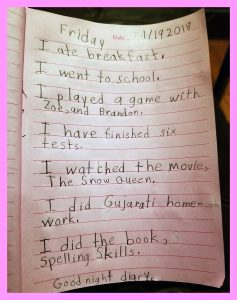 Friday
Date 1/19 2018
I ate breakfast.
I went to school.
I played a game with
Zoe, and Brandon.
I have finished six
tests.
I watched the movie,
The Snow Queen.
I did Gujarati home
work.
I did the book,
Spelling Skills.
Good night diary.